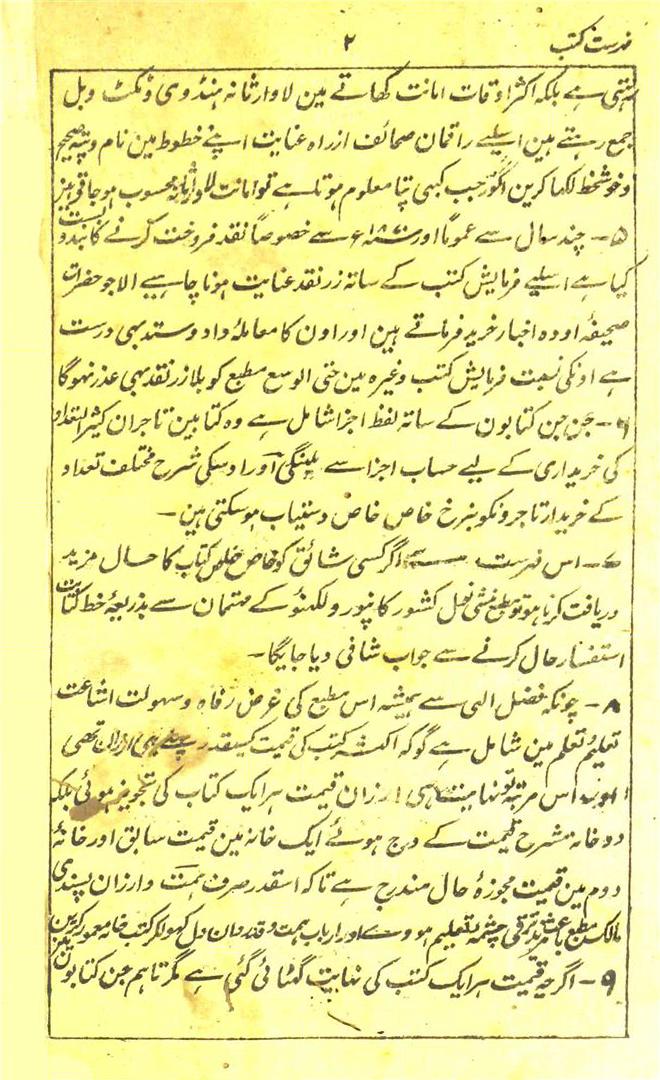 فہرست کتب ۲
ہتی ہے بلکہ اکثر اوقات امانت کھاتے مین لاوارثانہ ہنڈوی وٹکٹ وبل
جمع رہتے ہین اسلیے راقمان صحائف ازراہ عنایت اپنے خطوط مین نام وپتہ صحیح
وخوشخط لکھا کرین اگر جب کبھی پتا معلوم ہوتا ہے تو امانت محسوب ہوجاتی ہین
۵ – چند سال سے عموماً اور سے خصوصاً نقد فروخت کرنے کا بندوبست
کیا ہے اسلیے فرمایش کتب کے ساتہ زر نقد عنایت ہونا چاہیے الا جو حضرات
صحیفہ اودہ اخبار خرید فرماتے ہین اور اون کا معاملہ داد وستد بہی درست
ہے اونکی نسبت فرمایش کتب وغیرہ مین حتی الوسع مطبع کو بلا زر نقد بہی عذر نہوگا
۶ – جن جن کتابون کے ساتہ لفظ اجزا شامل ہے وہ کتابین تاجران کثیر التعداد
کی خریداری کے لیے حساب اجزا سے ملینگی اور اوسکی شرح مختلف تعداد
کے خریدار تاجرونکو بنرخ خاص خاص دستیاب ہوسکتی ہین –
۷ – اس فہرست سے اگر کسی شائق کو خاص خاص کتاب کا حال مزید
دریافت کرنا ہو تو مطبع منشی نول کشور کانپور ولکھنؤ کے مہتمان سے بذریعۂ خط کتابت
استفسار حال کرنے سے جواب شافی دیا جایگا –
۸ – چونکہ فضل الہی سے ہمیشہ اس مطبع کی غرض رفاہ وسہولت اشاعت
تعلیم وتعلم مین شامل ہے گو کہ اکثر کتب کی قیمت کسیقدر پہلے ہی ارزان تھی
اس مرتبہ تو نہایت ہی ارزان قیمت ہر ایک کتاب کی تجویز ہوئی بلکہ
دو خانہ شرح قیمت کے درج ہوئے ایک خانہ مین قیمت سابق اور خانۂ
دوم مین قیمت مجوزۂ حال مندرج ہے تاکہ اسقدر صرف ہمت وارزان پسندی
مالکان مطبع باعث مزید ترقی چشمۂ تعلیم ہووے اور ارباب ہمت وقدردان دل کھولکر کتب خانہ معمور کرین
۹ – اگرچہ قیمت ہر ایک کتب کی نہایت گھٹائی گئی ہے مگر تاہم جن کتابون